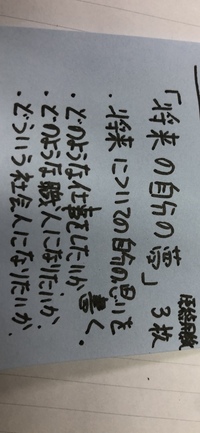 「将来の自分の夢」 3枚
・将来についての自分の思いを
書く。
・どのような仕事をしたいか
・どのような職人になりたいか、
・どういう社会人になりたいか、